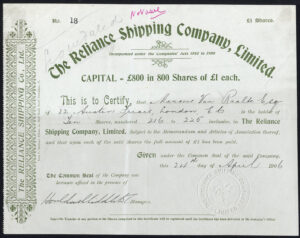 No. 18
£1 Shares.
The Reliance Shipping Company, Limited.
Incorporated under the Companies' Acts 1862 to 1900
CAPITAL - £800 in 800 Shares of £1 each.
This is to Certify, that
of 22, London E.C. is the holder
of Ten Shares, numbered 216 to 225 inclusive, in The Reliance
Shipping Company, Limited, Subject to the Memorandum and Articles of Association thereof,
and that upon each of the said shares the full amount of £1 has been paid.
Given under the Common Seal of the said Company,
this 2nd day of April 1906
The Common Seal of the Company was
hereunto affixed in the presence of
Managers.
The Reliance Shipping Co., Ltd.